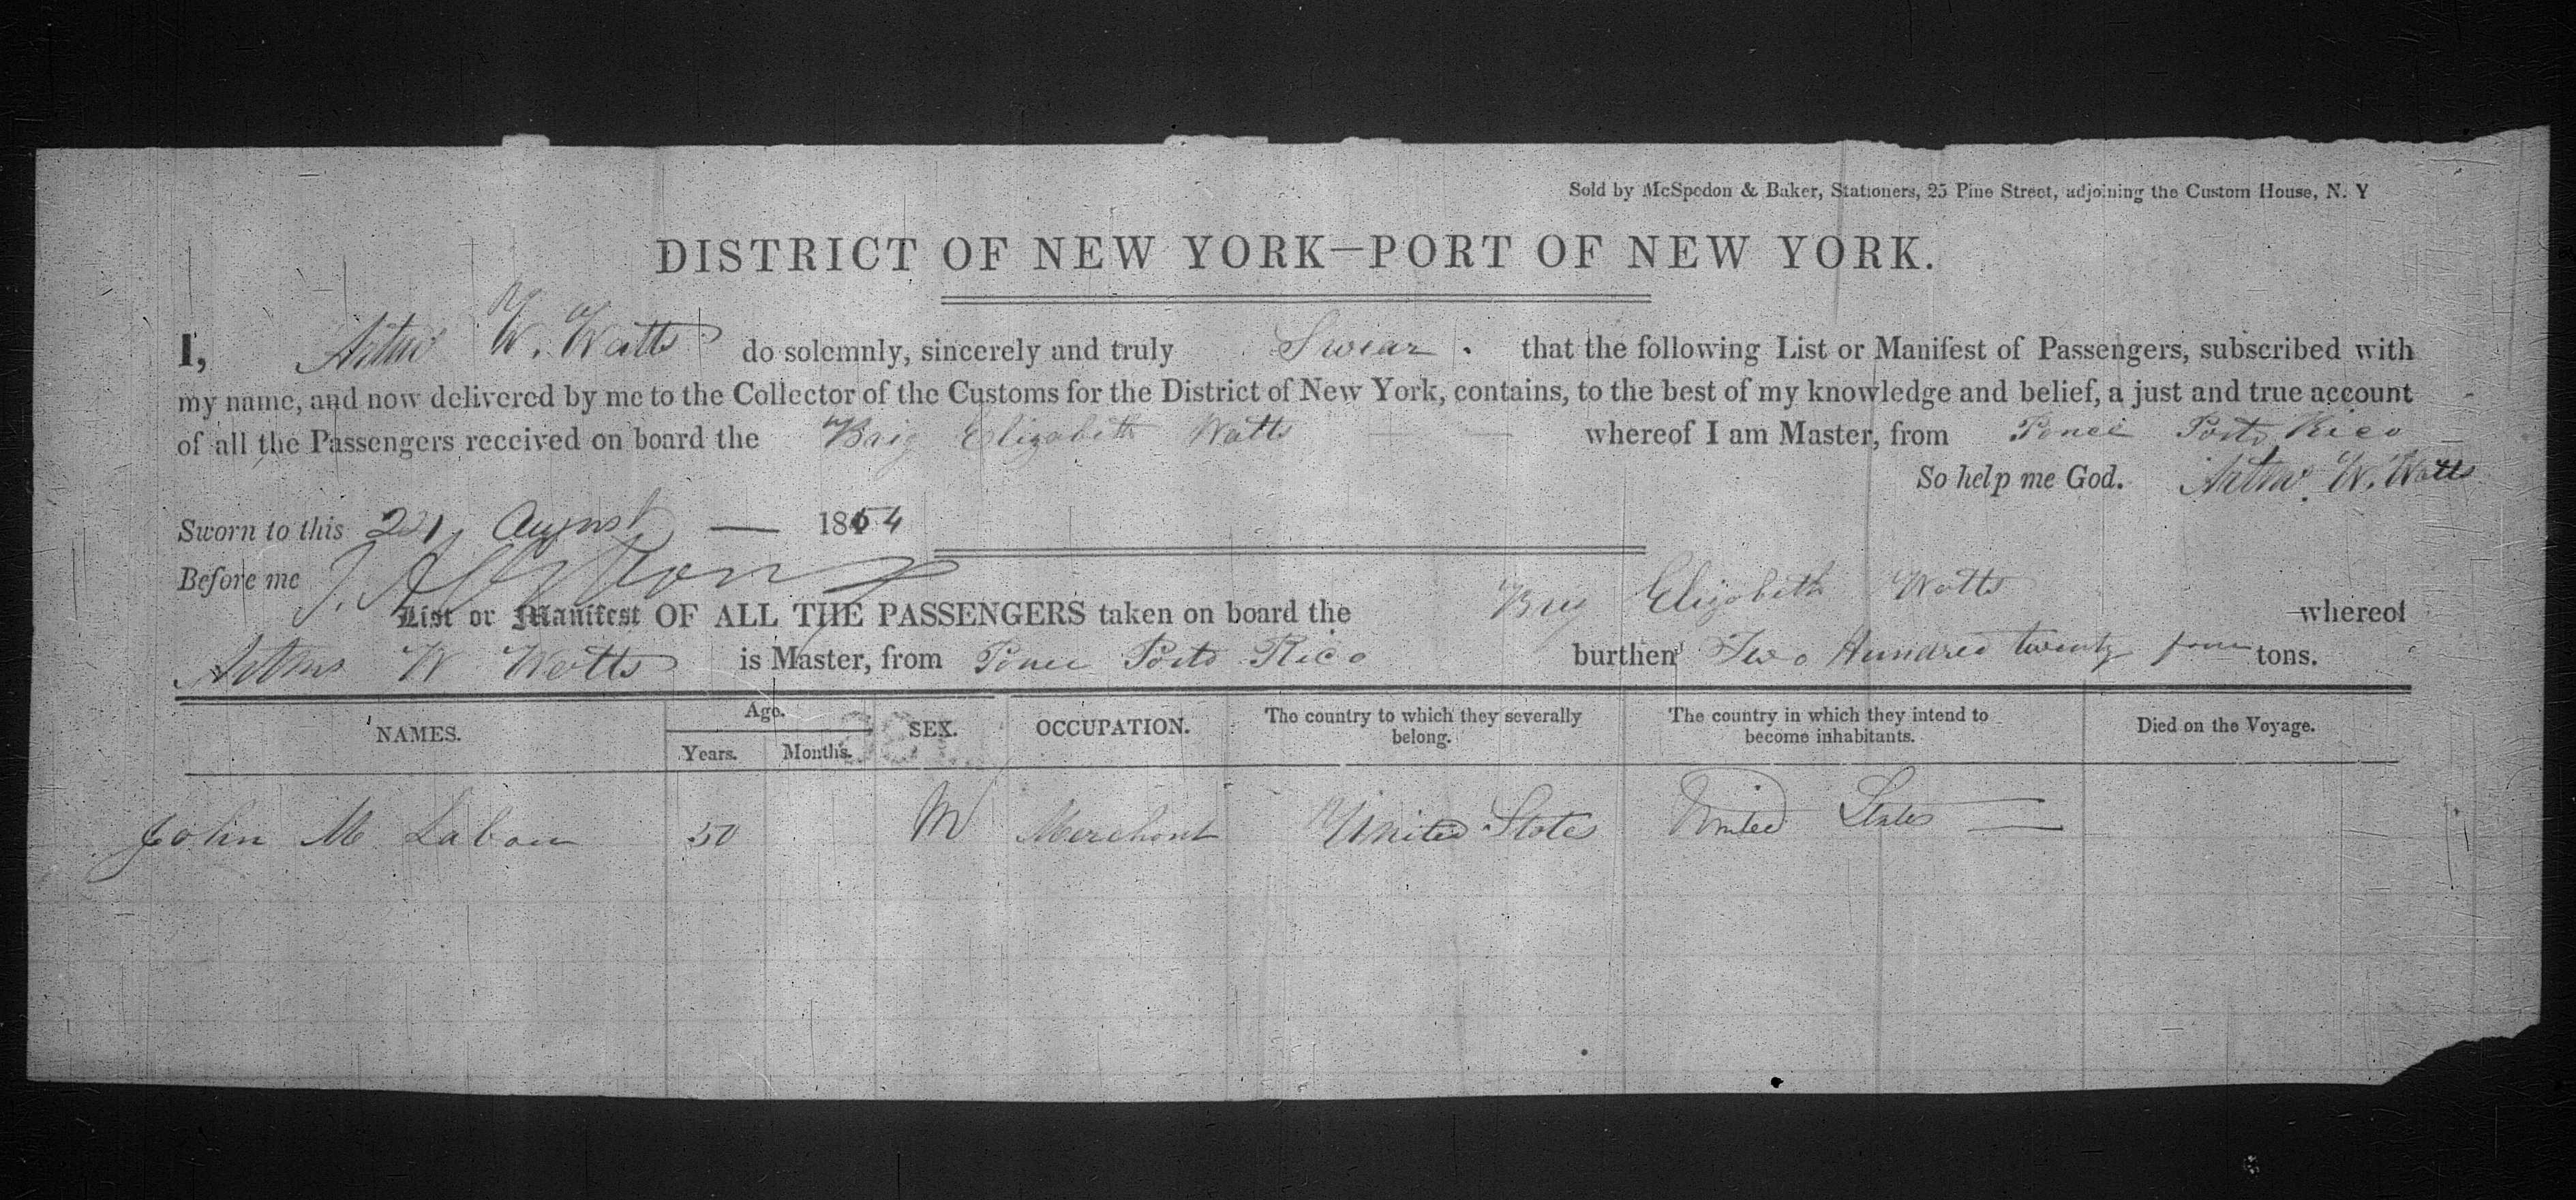 Sold by McSpedon & Baker, Stationers, 25 Pine Street, adjoining the Custom House, N. Y
DISTRICT OF NEW YORK—PORT OF NEW YORK.
I, W. Watts do solemnly, sincerely and truly Swear. that the following List or Manifest of Passengers, subscribed with
my name, and now delivered by me to the Collector of the Customs for the District of New York, contains, to the best of my knowledge and belief, a just and true account
of all the Passengers received on board the Brig Elizabeth Watts whereof I am Master, from Ponce Porto Rico
So help me God. W. Watts
Sworn to this August — 1854
Before me
List or Manifest OF ALL THE PASSENGERS taken on board the Brig Elizabeth Watts whereof
W Watts is Master, from Ponce Porto Rico burthen Two Hundred twenty four tons.
NAMES. Age. Years. Months. SEX. OCCUPATION. The country to which they severally belong. The country in which they intend to become inhabitants. Died on the Voyage.
John M 50 M Merchant United States United States